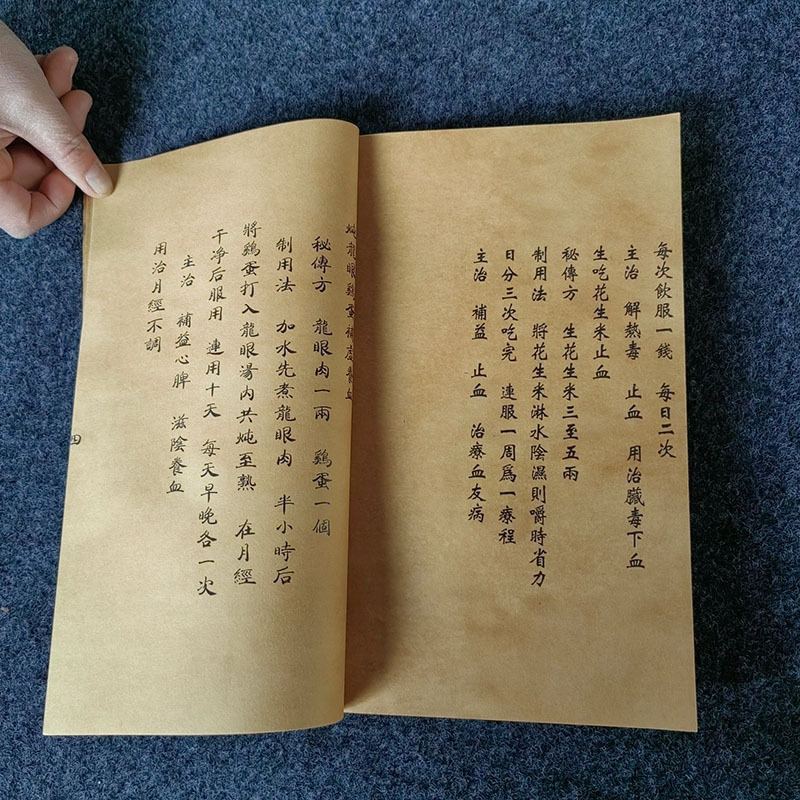 每次飲服一錢 每日二次
主治 解熱毒 止血 用治臟毒下血
生吃花生米止血
秘傳方 生花生米三至五兩
制用法 將花生米淋水陰濕則嚼時省力
日分三次吃完 連服一周爲一療程
主治 補益 止血 治療血友病
炖龍眼鷄蛋補虛養血
秘傳方 龍眼肉一兩 鷄蛋一個
制用法 加水先煮龍眼肉 半小時后
將鷄蛋打入龍眼湯内共炖至熟 在月經
干净后服用 連用十天 每天早晚各一次
主治 補益心脾 滋陰養血
用治月經不調
四